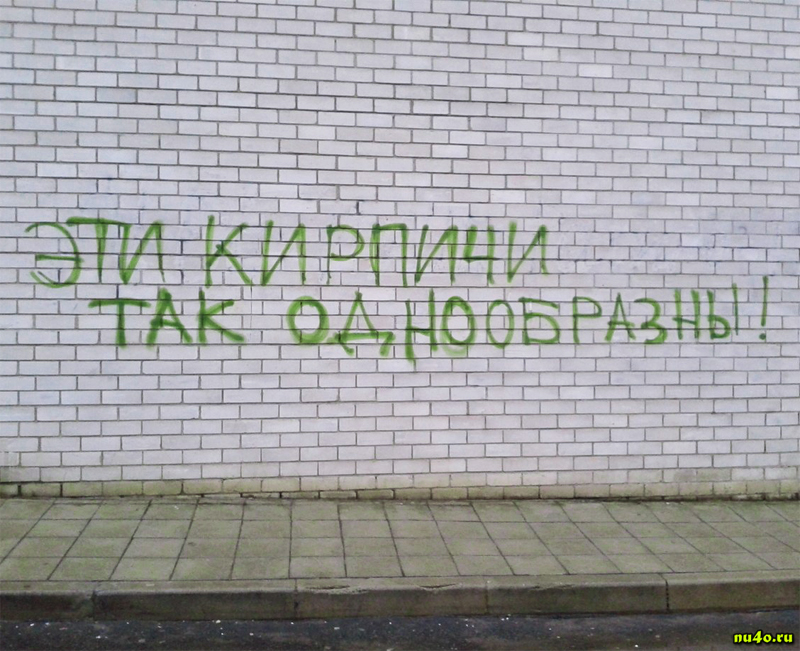 ЭТИ КИРПИЧИ
ТАК ОДНООБРАЗНЫ!
nu4o.ru